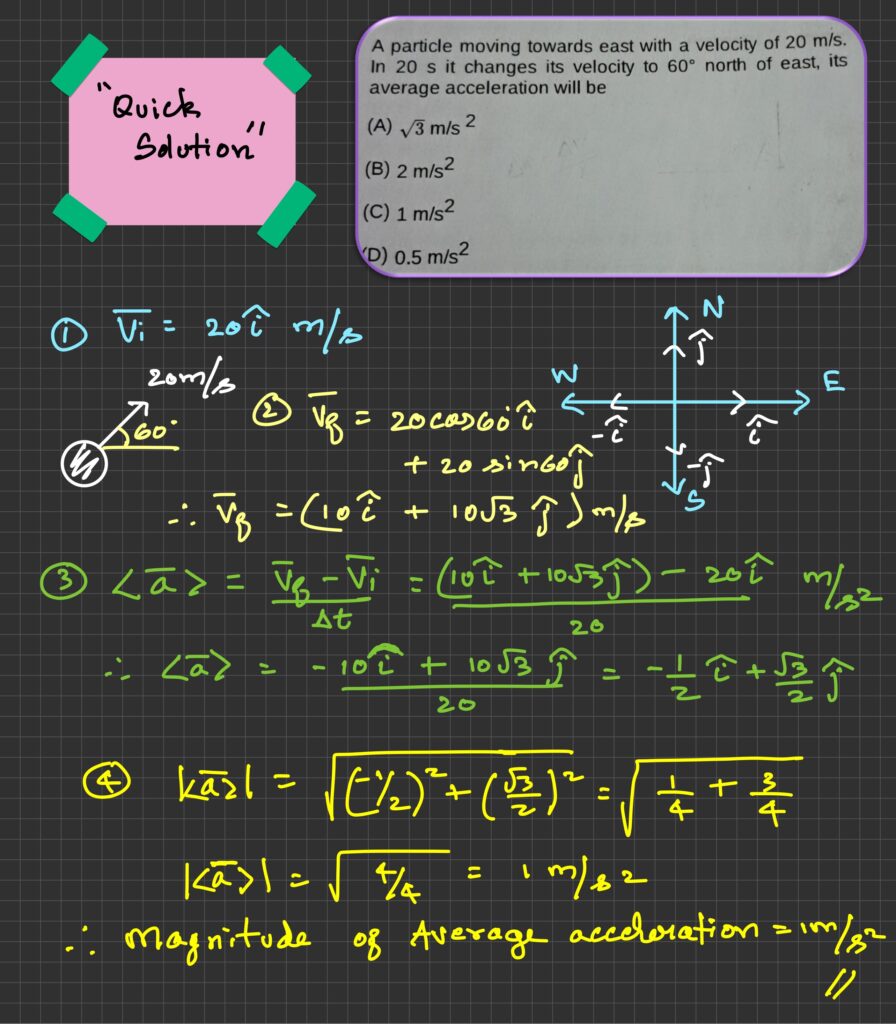 "Quick
Solution"
A particle moving towards east with a velocity of 20 m/s.
In 20 s it changes its velocity to 60° north of east, its
average acceleration will be
(A) √3 m/s 2
(B) 2 m/s2
(C) 1 m/s2
(D) 0.5 m/s2
① V̅i = 20î m/s
N
ĵ
W
E
-î
î
-ĵ
S
20m/s
60°
② V̅f = 20cos60°î
+ 20 sin60ĵ
∴ V̅f = (10î + 10√3 ĵ) m/s
③ <a̅> = V̅f - V̅i / Δt = (10î + 10√3ĵ) - 20î / 20 m/s2
∴ <a̅> = -10î + 10√3 ĵ / 20 = -1/2 î + √3/2 ĵ
④ |<a̅>| = √(-1/2)² + (√3/2)² = √1/4 + 3/4
|<a̅>| = √4/4 = 1 m/s2
∴ Magnitude of Average acceleration = 1m/s2